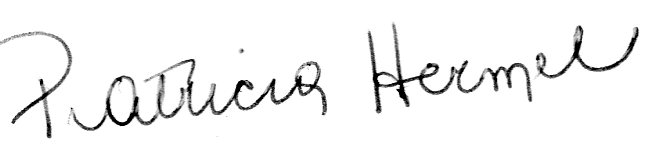 Patricia Hermel